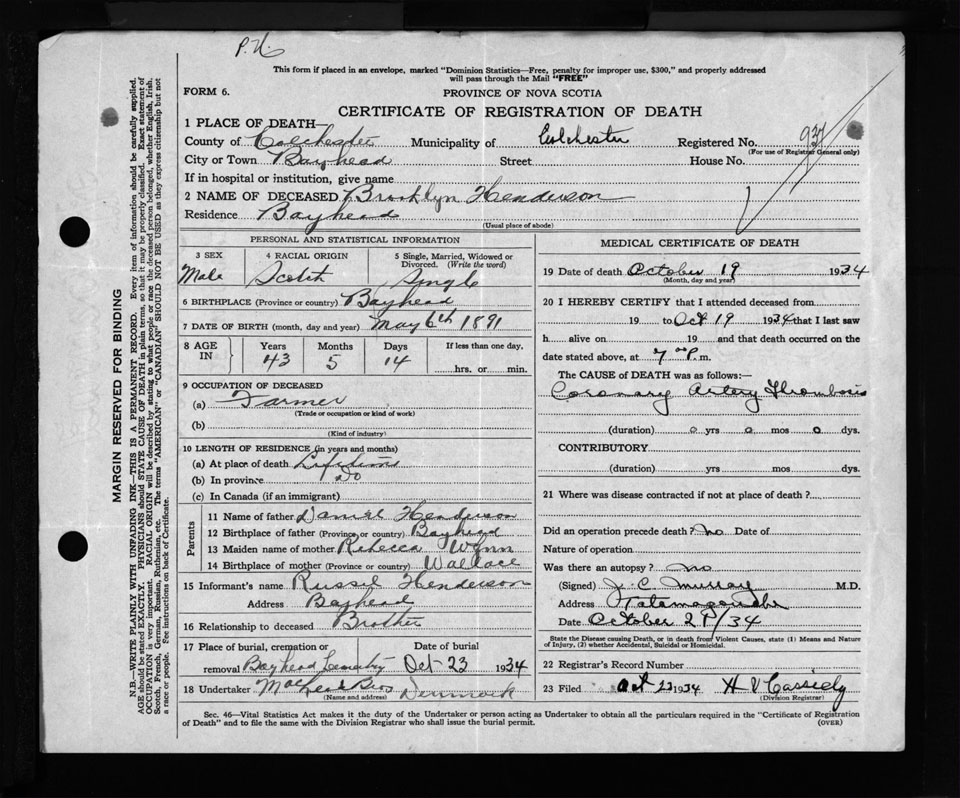 P.N.
This form if placed in an envelope, marked "Dominion Statistics—Free, penalty for improper use, $300," and properly addressed
will pass through the Mail "FREE"
FORM 6.
PROVINCE OF NOVA SCOTIA
CERTIFICATE OF REGISTRATION OF DEATH
1 PLACE OF DEATH—
County of Colchester Municipality of Colchester Registered No. 937
(For use of Registrar General only)
City or Town Bayhead Street House No.
If in hospital or institution, give name
2 NAME OF DECEASED Brooklyn Henderson
Residence Bayhead
(Usual place of abode)
PERSONAL AND STATISTICAL INFORMATION
3 SEX 4 RACIAL ORIGIN 5 Single, Married, Widowed or
Divorced. (Write the word)
Male Scotch Single
6 BIRTHPLACE (Province or country) Bayhead
7 DATE OF BIRTH (month, day and year) May 6th 1891
8 AGE IN Years Months Days If less than one day,
43 5 14 hrs. or min.
9 OCCUPATION OF DECEASED
(a) Farmer
(Trade or occupation or kind of work)
(b)
(Kind of industry)
10 LENGTH OF RESIDENCE (in years and months)
(a) At place of death Lifetime
(b) In province Do
(c) In Canada (if an immigrant)
Parents
11 Name of father Daniel Henderson
12 Birthplace of father (Province or country) Bayhead
13 Maiden name of mother Rebecca Wynn
14 Birthplace of mother (Province or country) Wallace
15 Informant's name Russil Henderson
Address Bayhead
16 Relationship to deceased Brother
17 Place of burial, cremation or Date of burial
removal Bayhead Cemetry Oct 23 1934
18 Undertaker Bros Denmark
(Name and address)
MEDICAL CERTIFICATE OF DEATH
19 Date of death October 19 1934
(Month, day and year)
20 I HEREBY CERTIFY that I attended deceased from
19 to Oct 19 1934 that I last saw
h alive on 19 and that death occurred on the
date stated above, at 7 00 P.m.
The CAUSE OF DEATH was as follows:—
Coronary Artery Thrombosis
(duration) 0 yrs 0 mos 0 dys.
CONTRIBUTORY.
(duration) yrs. mos. dys.
21 Where was disease contracted if not at place of death?
Did an operation precede death? no Date of
Nature of operation
Was there an autopsy? no
(Signed) J. C. Murray M.D.
Address Tatamagouche
Date October 21/34
State the Disease causing Death, or in death from Violent Causes, state (1) Means and Nature
of Injury, (2) whether Accidental, Suicidal or Homicidal.
22 Registrar's Record Number
23 Filed Oct 23 1934 H V Cassidy
(Division Registrar)
Sec. 46—Vital Statistics Act makes it the duty of the Undertaker or person acting as Undertaker to obtain all the particulars required in the "Certificate of Registration
of Death" and to file the same with the Division Registrar who shall issue the burial permit. (OVER)
MARGIN RESERVED FOR BINDING
N.B.—WRITE PLAINLY WITH UNFADING INK—THIS IS A PERMANENT RECORD. Every item of information should be carefully supplied.
AGE should be stated EXACTLY. PHYSICIANS should STATE CAUSE OF DEATH in plain terms, so that it may be properly classified. Exact statement of
OCCUPATION is very important. RACIAL ORIGIN will be described by stating to what people or race the deceased person belonged, whether English, Irish,
Scotch, French, German, Russian, Ruthenian, etc. The terms "AMERICAN" or "CANADIAN" SHOULD NOT BE USED as they express citizenship but not
a race or people. See instructions on back of Certificate.